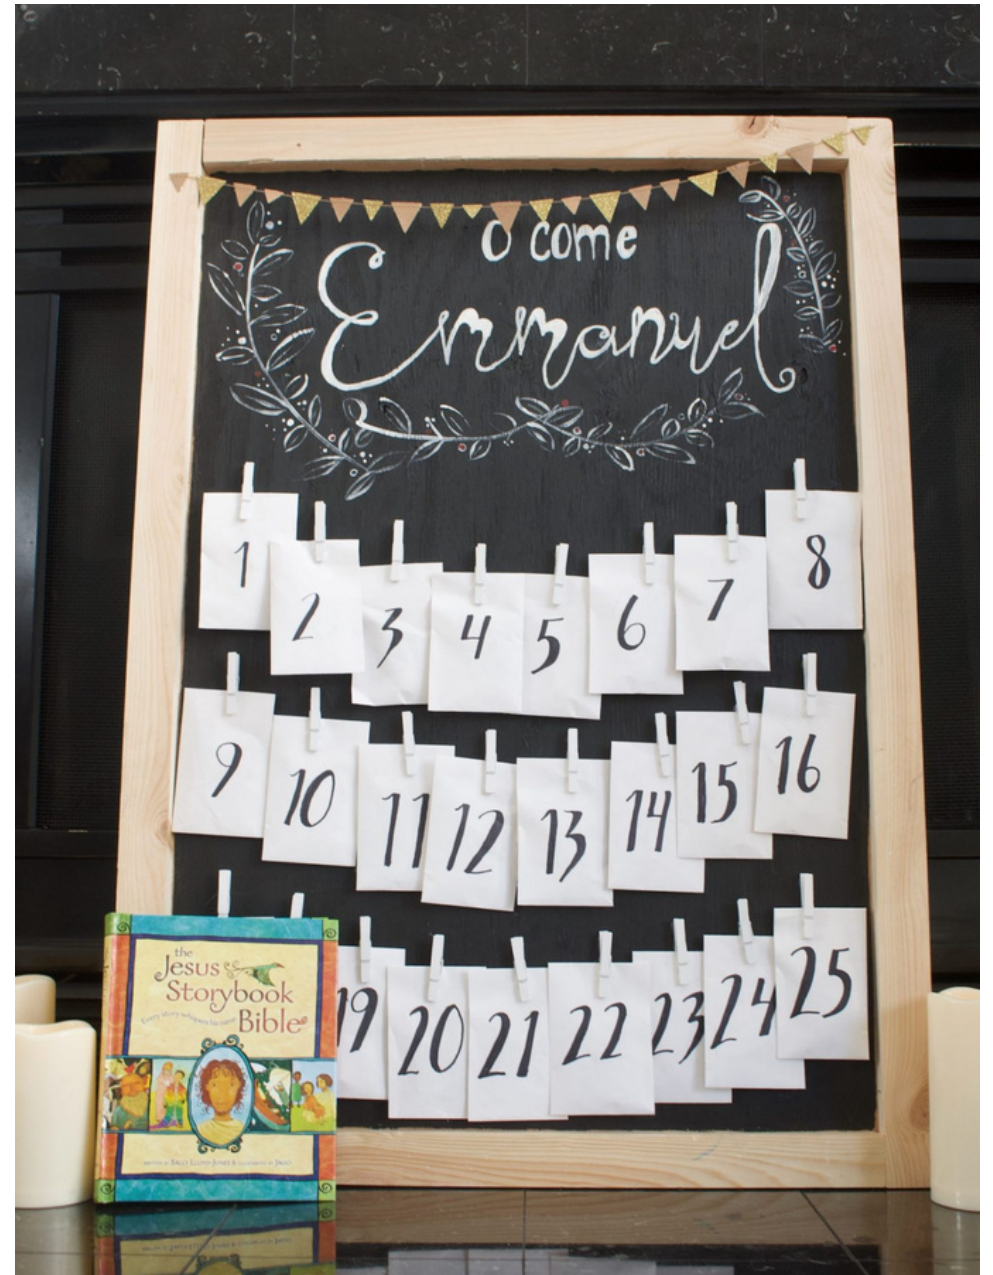 O come
Emmanuel
1 2 3 4 5 6 7 8
9 10 11 12 13 14 15 16
19 20 21 22 23 24 25
the
Jesus
Storybook
Bible
Every story whispers his name
WRITTEN BY SALLY LLOYD-JONES & ILLUSTRATED BY JAGO